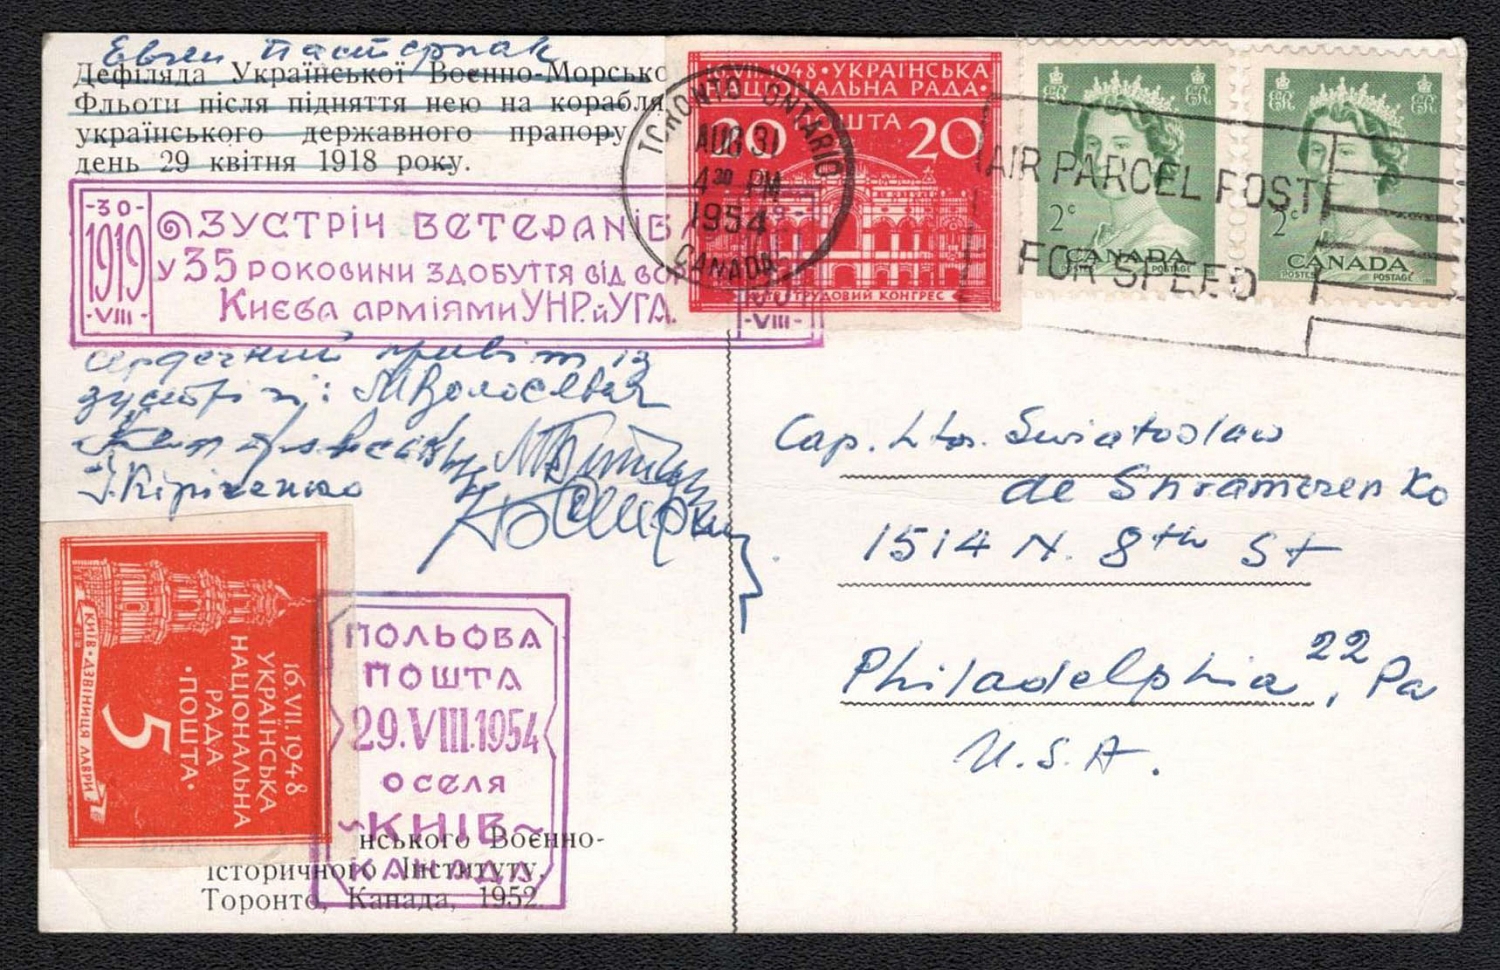 Евген Пастернак
Дефіляда Української Воєнно-Морсько
Фльоти після підняття нею на корабля
українського державного прапору
день 29 квітня 1918 року.
-30-
1919
-VIII-
ЗУСТРІЧ ВЕТЕРАНІВ
У 35 РОКОВИНИ ЗДОБУТТЯ ВІД
КИЄВА АРМІЯМИ УНР. й УГА.
-VIII-
16.VII.1948 · УКРАЇНСЬКА
НАЦІОНАЛЬНА РАДА ·
20 ПОШТА 20
ТРУДОВИЙ КОНГРЕС
TORONTO ONTARIO
AUG 31
4 30 PM
1954
CANADA
AIR PARCEL POST
FOR SPEED
2¢
CANADA
POSTES POSTAGE
2¢
CANADA
POSTES POSTAGE
сердечний привіт із
зустрічі: М Волосевич
І. Кіріченко
Cap. Ltn. Swiatoslaw
de Shramczenko
1514 N. 8th St
Philadelphia 22, Pa
U.S.A.
16.VII.1948
УКРАЇНСЬКА
НАЦІОНАЛЬНА
РАДА
·ПОШТА·
5
КИЇВ · ДЗВІНИЦЯ ЛАВРИ
ПОЛЬОВА
ПОШТА
29.VIII.1954
ОСЕЛЯ
~КИЇВ~
КАНАДА
нського Воєнно-
історичного Інституту,
Торонто, Канада, 1952